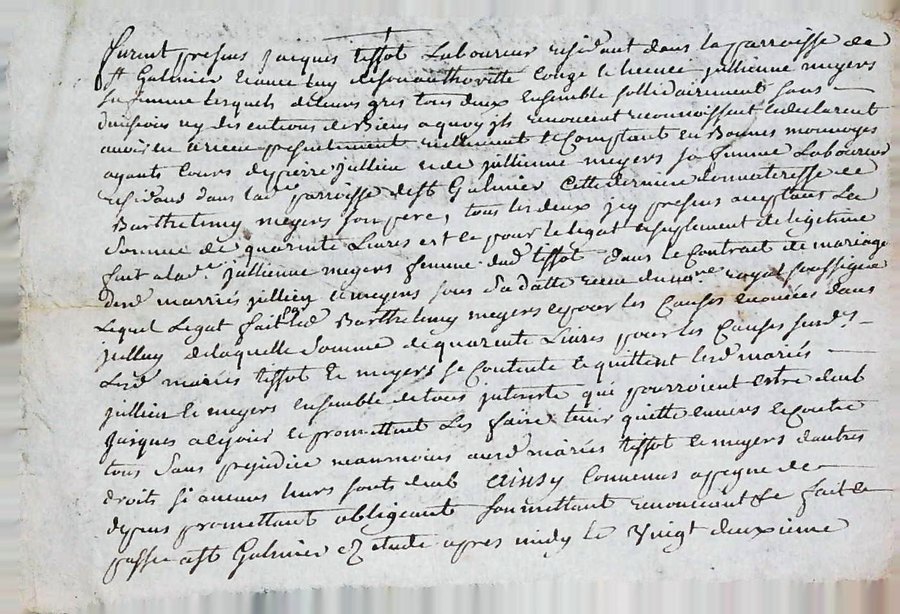 furent presens Jacques tissot Laboureur residant dans la parroisse de
st Galmier lequel de son authorité conge & licence jullienne meyers
sa femme lesquels de leurs gres tous deux Ensemble sollidairement sans
division ny discutions de Biens a quoy ils renoncent reconnoissent & declarent
avoir eu & receu presentement reellement & Comptant en Bonnes monnoyes
ayants Cours de pierre jullien et de jullienne meyers sa femme Laboureur
residans dans lad parroisse de st Galmier Cette derniere donnateresse de
Barthelemy meyers son pere, tous les deux icy presens acceptans La
Somme de quarente Livres et ce pour le legat & suplement de legitime
fait a lad.e jullienne meyers femme dud tissot dans le Contrat de mariage
desd marriés jullien & meyers sous sa datte receu du no.re royal soussigné
Lequel Legat fait par led Barthelemy meyers & pour les Causes enoncées dans
jcelluy de laquelle Somme de quarente Livres pour les Causes susd.s
Lesd mariés tissot & meyers se Contente & quittent lesd mariés
jullien & meyers ensemble de tous interets qui pourroient estre deub
jusques a ce jour & promettent Les faire tenir quitte envers & contre
tous Sans prejudice neanmoins auxd mariés tissot & meyers d'autres
droits si aucuns leurs sont deub ainsy Convenus a peyne de
depens promettant obligeant soumettant renoncant &c fait &
passé a st Galmier ez etude apres midy le Vingt deuxieme